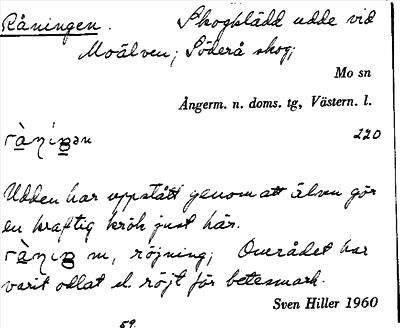 Råningen. Skogklädd udde vid
Moälven; Söderå skog;
Mo sn
Ångerm. n. doms. tg, Västern. l.
220
Udden har uppstått genom att älven gör
en kraftig krök just här.
m, röjning; Området har
varit odlat el. röjt för betesmark.
Sven Hiller 1960
59.